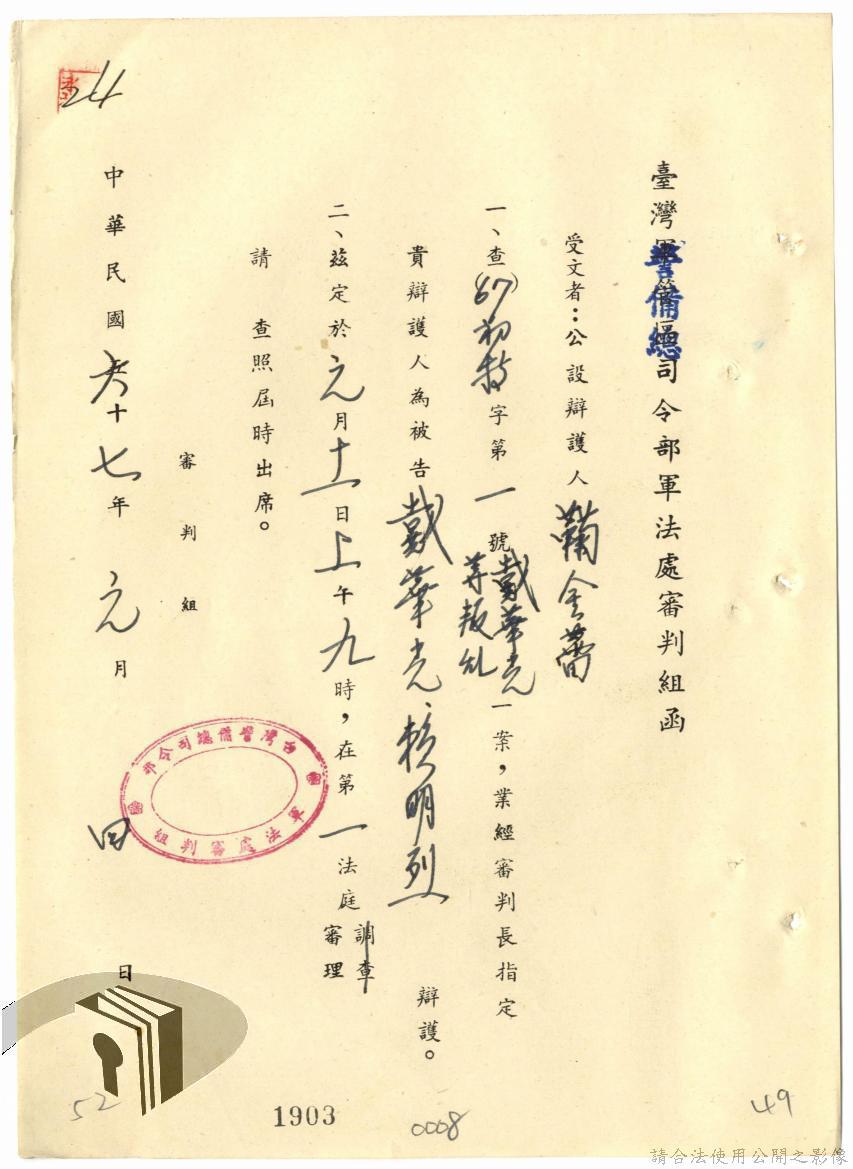 臺灣警備總司令部軍法處審判組函
受文者：公設辯護人
一、查(67)初特字第一號戴華光等叛乱一案，業經審判長指定
貴辯護人為被告戴華光、賴明烈辯護。
二、茲定於元月十一日上午九時，在第一法庭調查審理
請查照屆時出席。
審判組
中華民國六十七年元月四日
台灣警備總司令部
軍法處審判組
24
52
1903
0008
49
請合法使用公開之影像